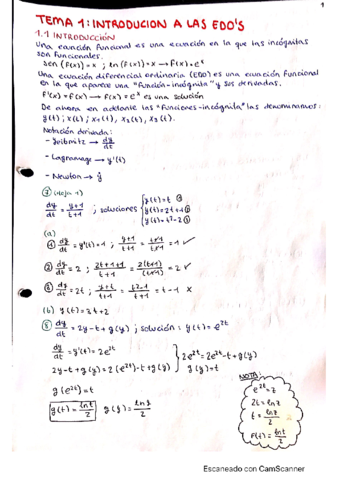 1
TEMA 1: INTRODUCION A LAS EDO'S
1.1 INTRODUCCIÓN
Una ecuación funcional es una ecuación en la que las incógnitas
son funcionales.
sen (F(x)) = x ; ln (F(x)) = x → F(x) = e^x
Una ecuación diferencial ordinaria (EDO) es una ecuación funcional
en la que aparece una "función-incógnita" y sus derivadas.
F'(x) = F(x) → F(x) = e^x es una solución
De ahora en adelante las "funciones-incógnita" las denominamos:
y(t); x(t); x₁(t), x₂(t), x₃(t).
Notación derivada:
- Leibnitz → dy/dt
- Lagrange → y'(t)
- Newton → ẏ
⑦ (hoja 1)
dy/dt = y+1/t+1 ; soluciones { y(t)=t ① y(t)=2t+1 ② y(t)=t²-2 ③
(a)
① dy/dt = y'(t) = 1 ; y+1/t+1 = t+1/t+1 = 1 ✓
② dy/dt = 2 ; 2t+1+1/t+1 = 2(t+1)/(t+1) = 2 ✓
③ dy/dt = 2t ; = t-1 x
(b) y(t) = 3t+2
⑧ dy/dt = 2y-t+g(y) ; solución: y(t) = e^2t
dy/dt = y'(t) = 2e^2t
2y-t+g(y) = 2(e^2t)-t+g(y) } 2e^2t = 2e^2t-t+g(y)
g(y) = t
g(e^2t) = t
g(t) = ln t/2 g(y) = ln y/2
NOTA:
e^2t = z
2t = ln z
t = ln z/2
F(t) = ln t/2
Escaneado con CamScanner